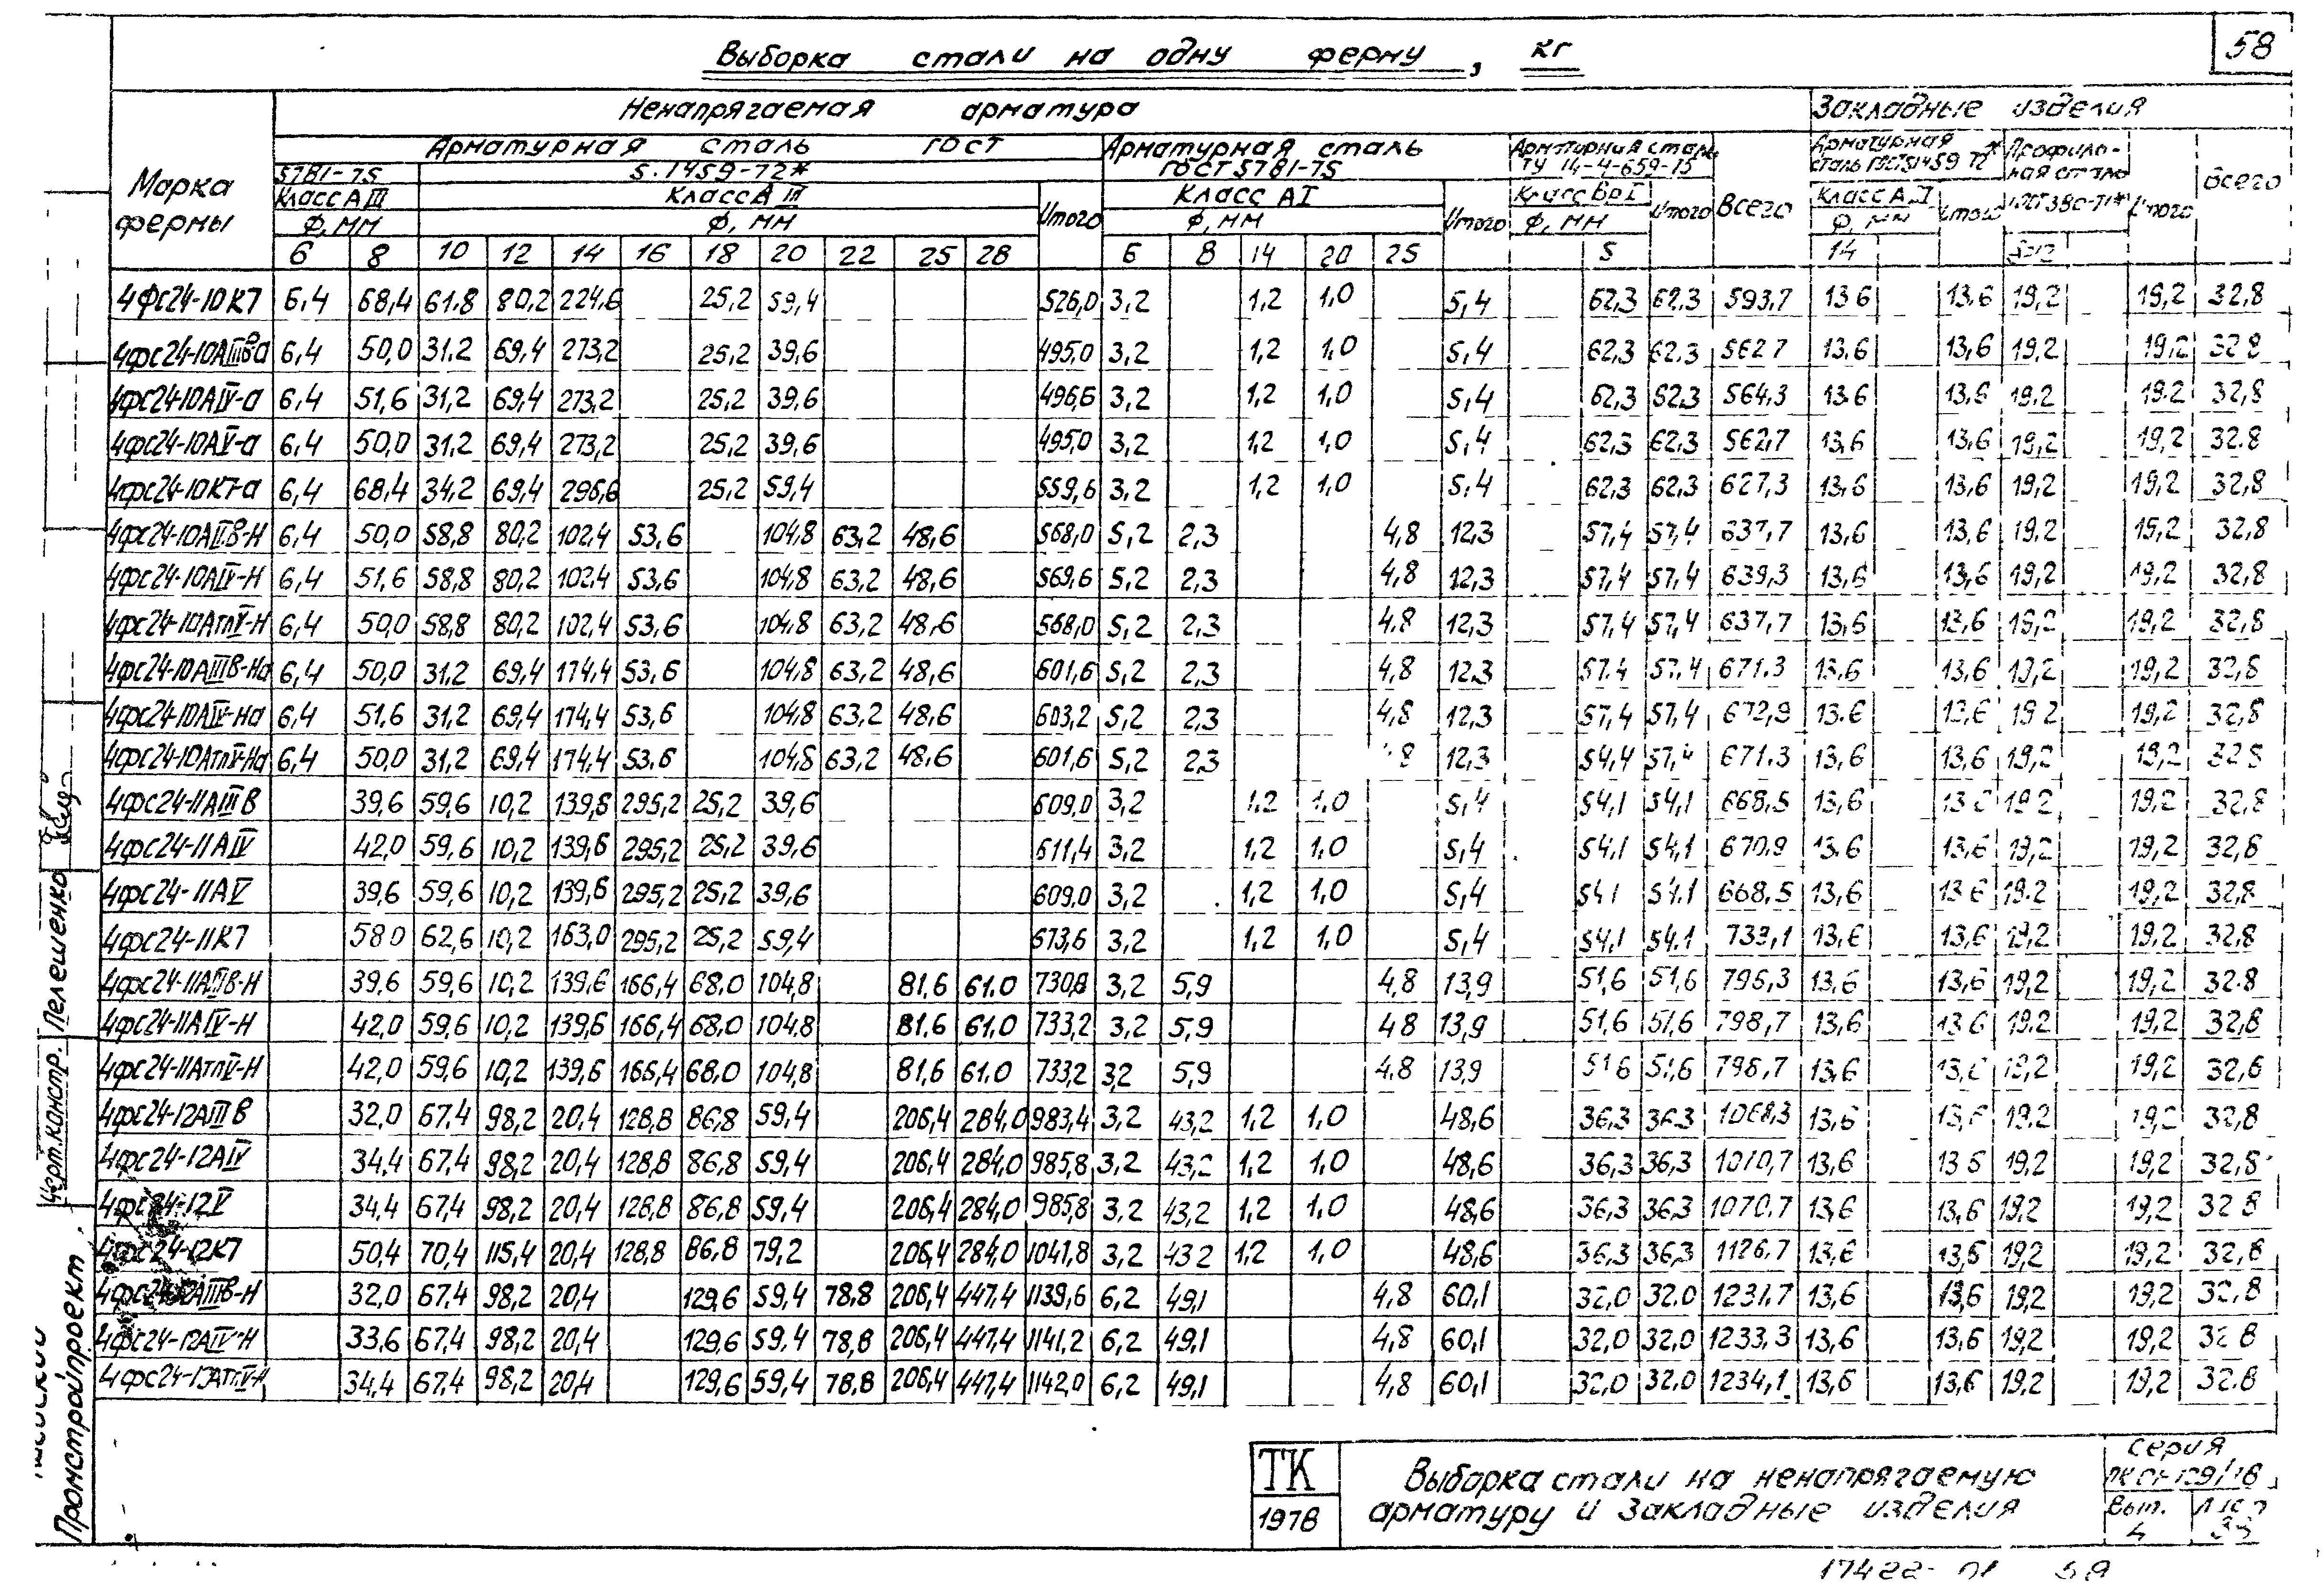 58
Выборка стали на одну ферму, кг
Марка фермы
Ненапрягаемая арматура
Закладные изделия
Арматурная сталь ГОСТ
Арматурная сталь ГОСТ 5781-75
Арматурная сталь ТУ 14-4-659-75
Всего
Арматурная сталь ГОСТ 5.1459-72*
Профильная сталь
Всего
5781-75
5.1459-72*
Класс А III
Класс А III
Итого
Класс А I
Итого
Класс Вр I
Итого
Итого
Итого
Ф, мм
Ф, мм
Ф, мм
Ф, мм
Ф, мм
6 8 10 12 14 16 18 20 22 25 28 6 8 14 20 25 5 14
4ФС24-10К7 6,4 68,4 61,8 80,2 224,6 25,2 59,4 526,0 3,2 1,2 1,0 5,4 62,3 62,3 593,7 13,6 13,6 19,2 19,2 32,8
4ФС24-10АIIIва 6,4 50,0 31,2 69,4 273,2 25,2 39,6 495,0 3,2 1,2 1,0 5,4 62,3 62,3 562,7 13,6 13,6 19,2 19,2 32,8
4ФС24-10АIV-а 6,4 51,6 31,2 69,4 273,2 25,2 39,6 496,6 3,2 1,2 1,0 5,4 62,3 62,3 564,3 13,6 13,6 19,2 19,2 32,8
4ФС24-10АV-а 6,4 50,0 31,2 69,4 273,2 25,2 39,6 495,0 3,2 1,2 1,0 5,4 62,3 62,3 562,7 13,6 13,6 19,2 19,2 32,8
4ФС24-10К7-а 6,4 68,4 34,2 69,4 296,6 25,2 59,4 559,6 3,2 1,2 1,0 5,4 62,3 62,3 627,3 13,6 13,6 19,2 19,2 32,8
4ФС24-10АIIIв-Н 6,4 50,0 58,8 80,2 102,4 53,6 104,8 63,2 48,6 568,0 5,2 2,3 4,8 12,3 57,4 57,4 637,7 13,6 13,6 19,2 19,2 32,8
4ФС24-10АIV-Н 6,4 51,6 58,8 80,2 102,4 53,6 104,8 63,2 48,6 569,6 5,2 2,3 4,8 12,3 57,4 57,4 639,3 13,6 13,6 19,2 19,2 32,8
4ФС24-10АтV-Н 6,4 50,0 58,8 80,2 102,4 53,6 104,8 63,2 48,6 568,0 5,2 2,3 4,8 12,3 57,4 57,4 637,7 13,6 13,6 19,2 19,2 32,8
4ФС24-10АIIIв-На 6,4 50,0 31,2 69,4 174,4 53,6 104,8 63,2 48,6 601,6 5,2 2,3 4,8 12,3 57,4 57,4 671,3 13,6 13,6 19,2 19,2 32,8
4ФС24-10АIV-На 6,4 51,6 31,2 69,4 174,4 53,6 104,8 63,2 48,6 603,2 5,2 2,3 4,8 12,3 57,4 57,4 672,9 13,6 13,6 19,2 19,2 32,8
4ФС24-10АтV-На 6,4 50,0 31,2 69,4 174,4 53,6 104,8 63,2 48,6 601,6 5,2 2,3 8 12,3 54,4 57,4 671,3 13,6 13,6 19,2 19,2 32,8
4ФС24-11АIIIв 39,6 59,6 10,2 139,6 295,2 25,2 39,6 609,0 3,2 1,2 1,0 5,4 54,1 54,1 668,5 13,6 13,6 19,2 19,2 32,8
4ФС24-11АIV 42,0 59,6 10,2 139,6 295,2 25,2 39,6 611,4 3,2 1,2 1,0 5,4 54,1 54,1 670,9 13,6 13,6 19,2 19,2 32,8
4ФС24-11АV 39,6 59,6 10,2 139,6 295,2 25,2 39,6 609,0 3,2 1,2 1,0 5,4 54,1 54,1 668,5 13,6 13,6 19,2 19,2 32,8
4ФС24-11К7 58,0 62,6 10,2 163,0 295,2 25,2 59,4 673,6 3,2 1,2 1,0 5,4 54,1 54,1 733,1 13,6 13,6 19,2 19,2 32,8
4ФС24-11АIIIв-Н 39,6 59,6 10,2 139,6 166,4 68,0 104,8 81,6 61,0 730,8 3,2 5,9 4,8 13,9 51,6 51,6 796,3 13,6 13,6 19,2 19,2 32,8
4ФС24-11АIV-Н 42,0 59,6 10,2 139,6 166,4 68,0 104,8 81,6 61,0 733,2 3,2 5,9 4,8 13,9 51,6 51,6 798,7 13,6 13,6 19,2 19,2 32,8
4ФС24-11АтV-Н 42,0 59,6 10,2 139,6 166,4 68,0 104,8 81,6 61,0 733,2 3,2 5,9 4,8 13,9 51,6 51,6 798,7 13,6 13,6 19,2 19,2 32,8
4ФС24-12АIIIв 32,0 67,4 98,2 20,4 128,8 86,8 59,4 206,4 284,0 983,4 3,2 43,2 1,2 1,0 48,6 36,3 36,3 1068,3 13,6 13,6 19,2 19,2 32,8
4ФС24-12АIV 34,4 67,4 98,2 20,4 128,8 86,8 59,4 206,4 284,0 985,8 3,2 43,2 1,2 1,0 48,6 36,3 36,3 1070,7 13,6 13,6 19,2 19,2 32,8
4ФС24-12V 34,4 67,4 98,2 20,4 128,8 86,8 59,4 206,4 284,0 985,8 3,2 43,2 1,2 1,0 48,6 36,3 36,3 1070,7 13,6 13,6 19,2 19,2 32,8
4ФС24-12К7 50,4 70,4 115,4 20,4 128,8 86,8 79,2 206,4 284,0 1041,8 3,2 43,2 1,2 1,0 48,6 36,3 36,3 1126,7 13,6 13,6 19,2 19,2 32,8
4ФС24-12АIIIв-Н 32,0 67,4 98,2 20,4 129,6 59,4 78,8 206,4 447,4 1139,6 6,2 49,1 4,8 60,1 32,0 32,0 1231,7 13,6 13,6 19,2 19,2 32,8
4ФС24-12АIV-Н 33,6 67,4 98,2 20,4 129,6 59,4 78,8 206,4 447,4 1141,2 6,2 49,1 4,8 60,1 32,0 32,0 1233,3 13,6 13,6 19,2 19,2 32,8
4ФС24-12АтV-Н 34,4 67,4 98,2 20,4 129,6 59,4 78,8 206,4 447,4 1142,0 6,2 49,1 4,8 60,1 32,0 32,0 1234,1 13,6 13,6 19,2 19,2 32,8
Черт.констр. Пелешенко
Промстройпроект
ТК
1978
Выборка стали на ненапрягаемую
арматуру и закладные изделия
Серия
Вып.
4
Лист
17422-01 59